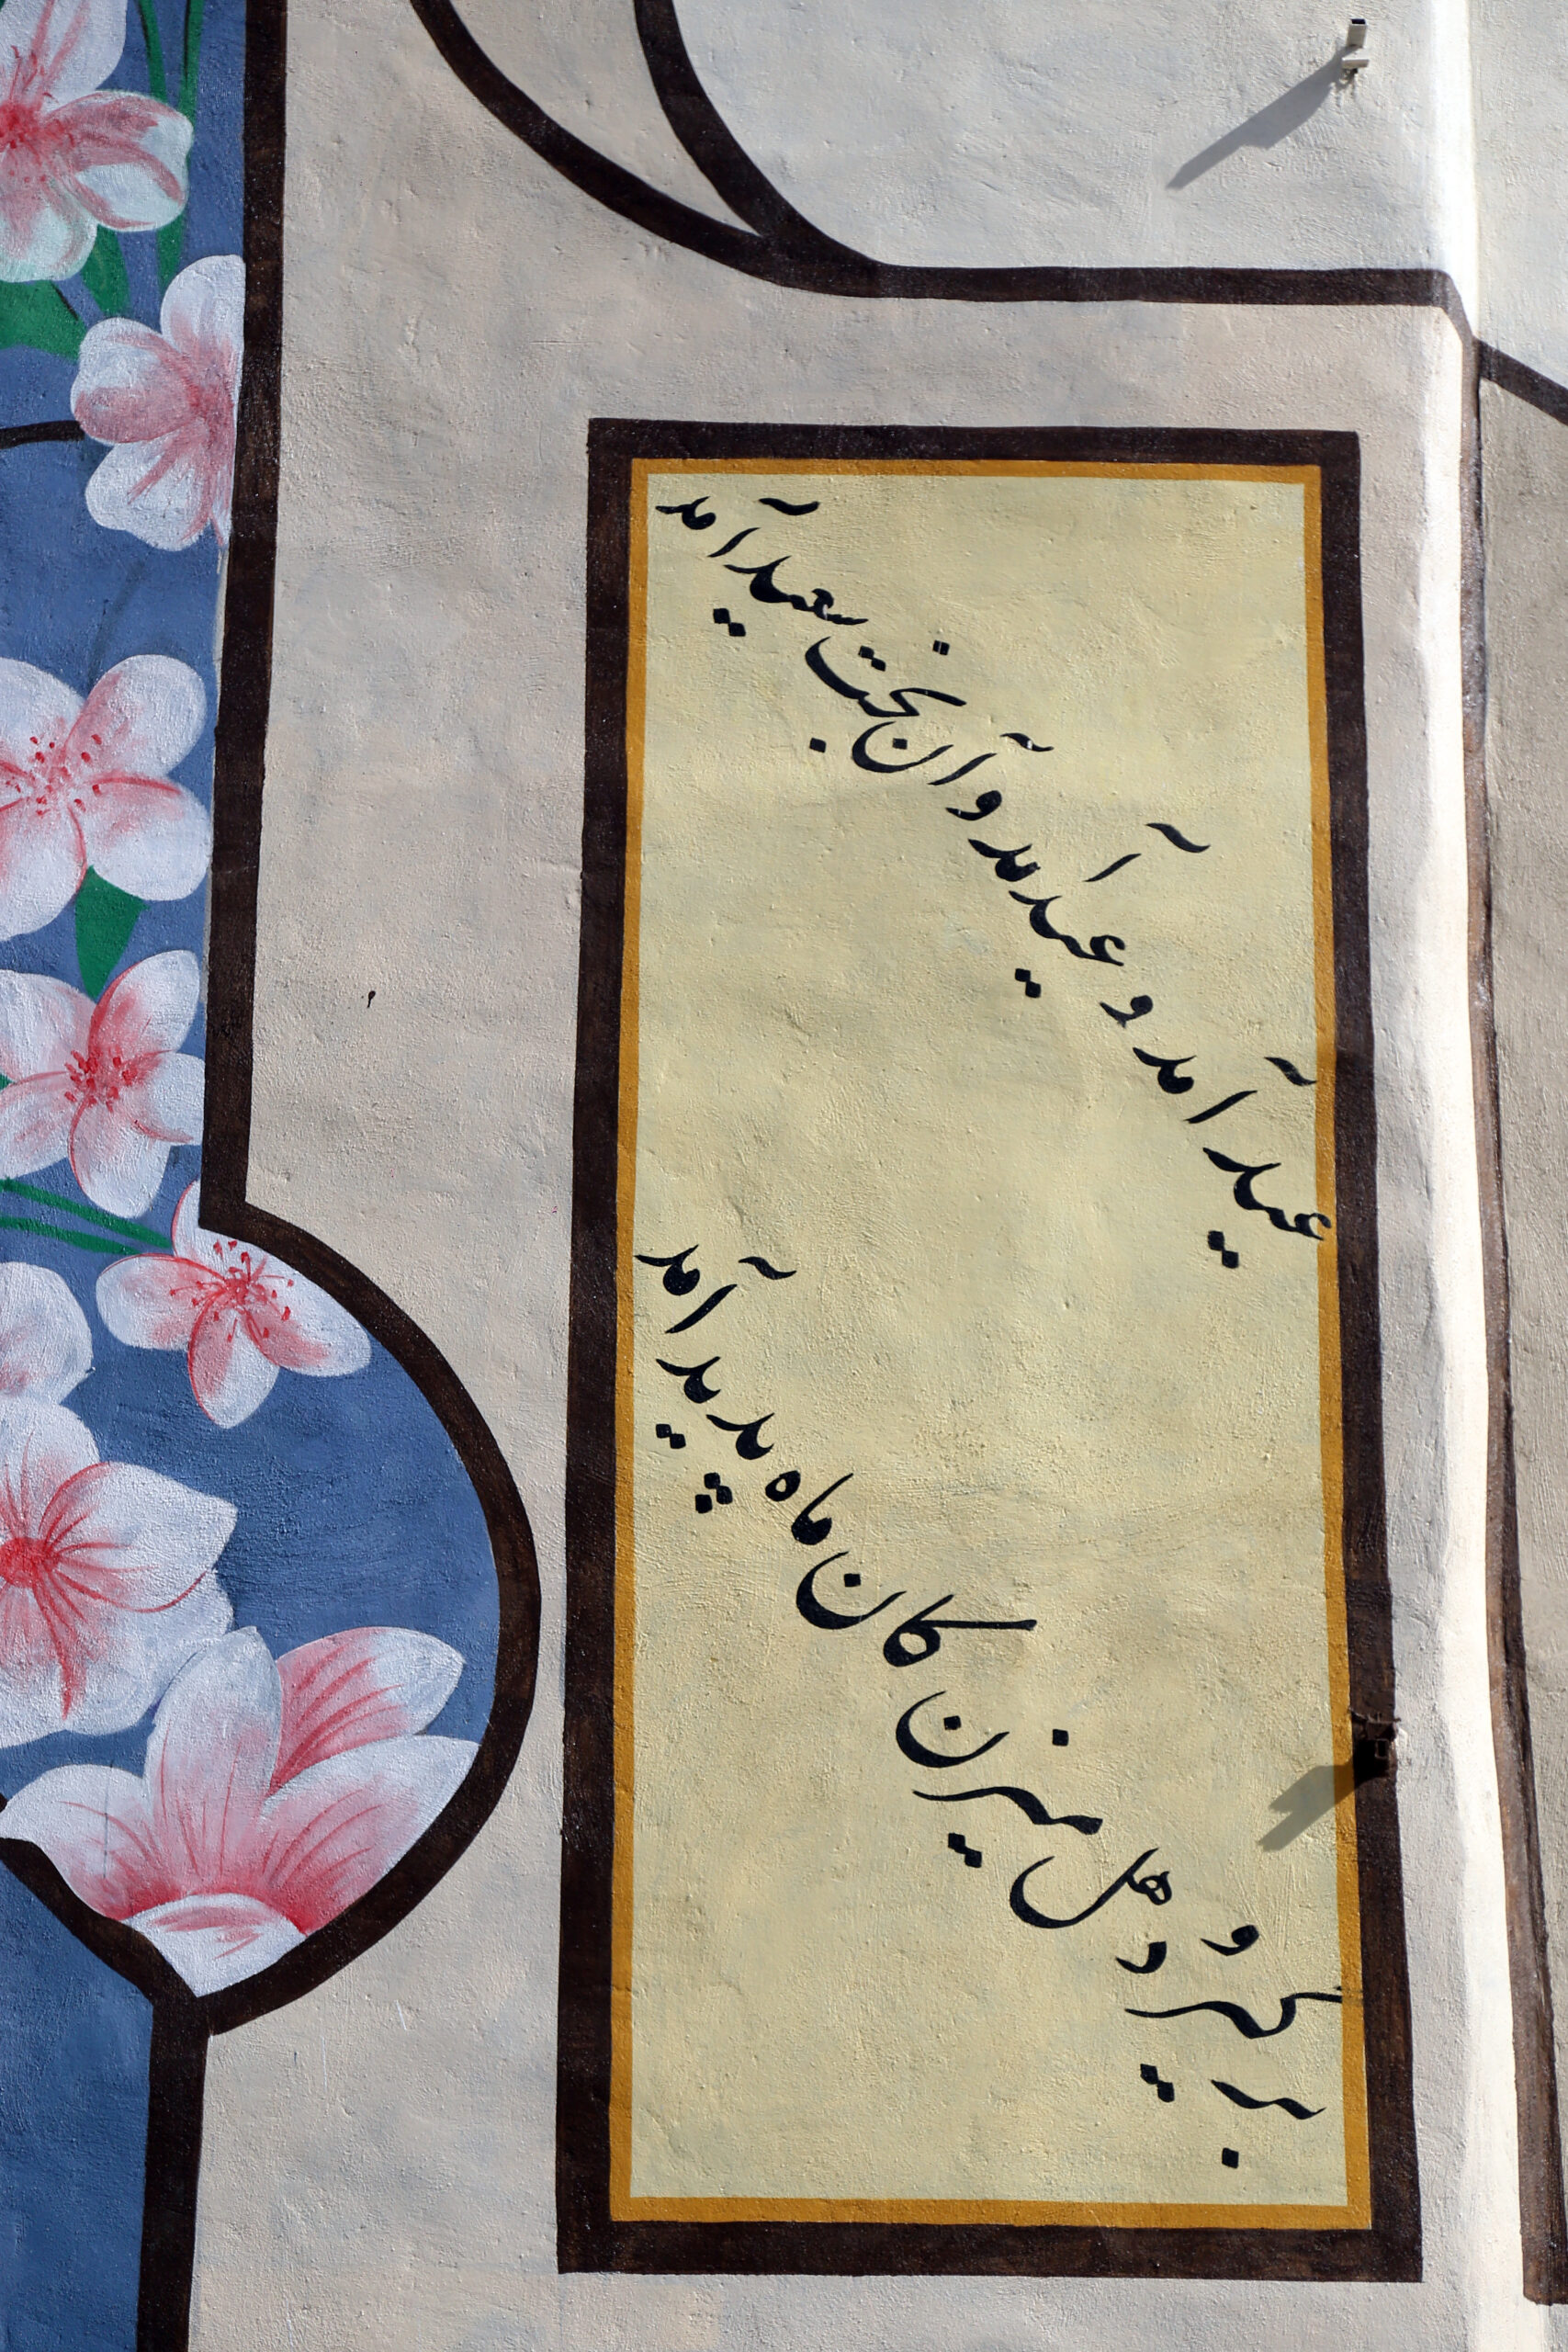 عید آمد و عید آمد و آن بخت سعید آمد
برگیر و دهل میزن کان ماه پدید آمد